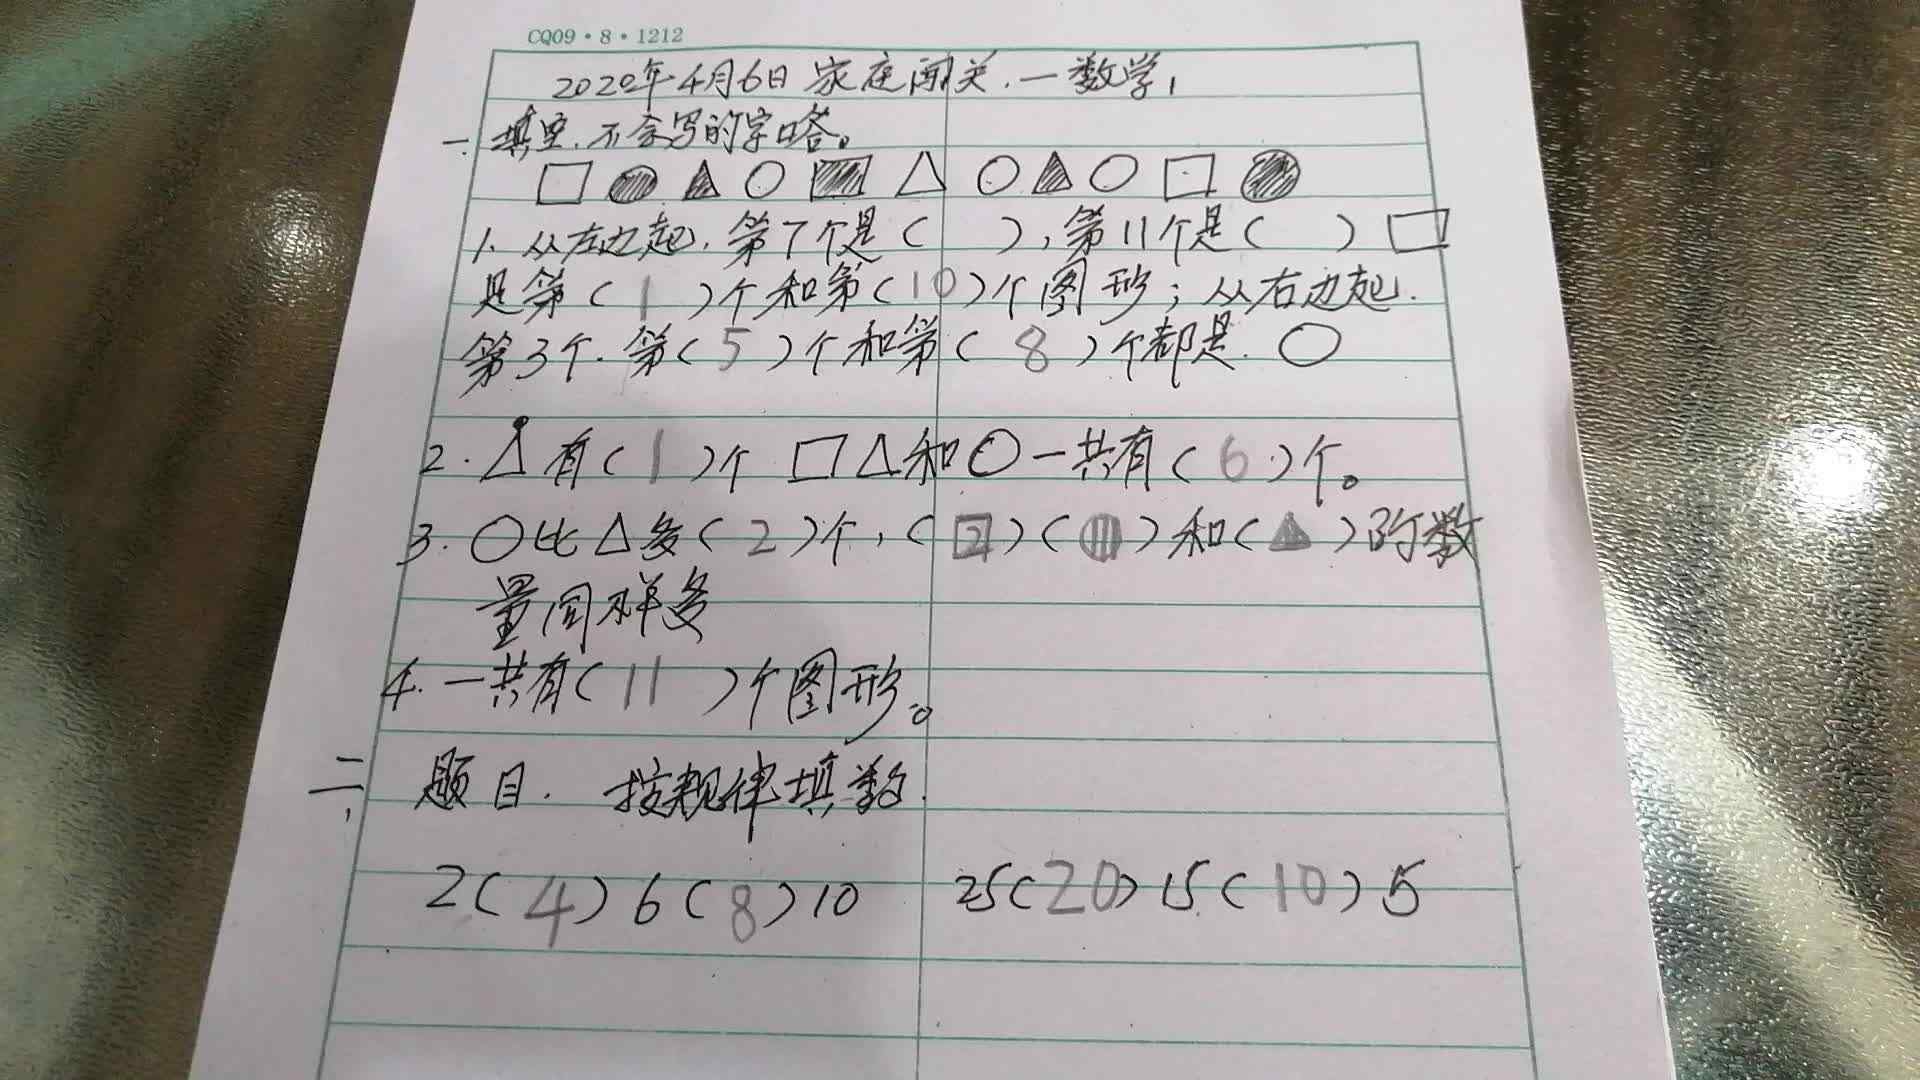 CQ09·8·1212
2020年4月6日 家庭闯关.一数学1
一. 填空.不会写的字口答。
□ ● ▲ ○ ■ △ ○ ▲ ○ □ ●
1. 从左边起,第7个是( ),第11个是( ) □
是第(1)个和第(10)个图形;从右边起.
第3个.第(5)个和第(8)个都是.○
2. △有(1)个 □△和○一共有(6)个。
3. ○比△多(2)个,(■)(●)和(▲)的数
量同样多
4. 一共有(11)个图形。
二、题目. 按规律填数.
2(4)6(8)10 25(20)15(10)5